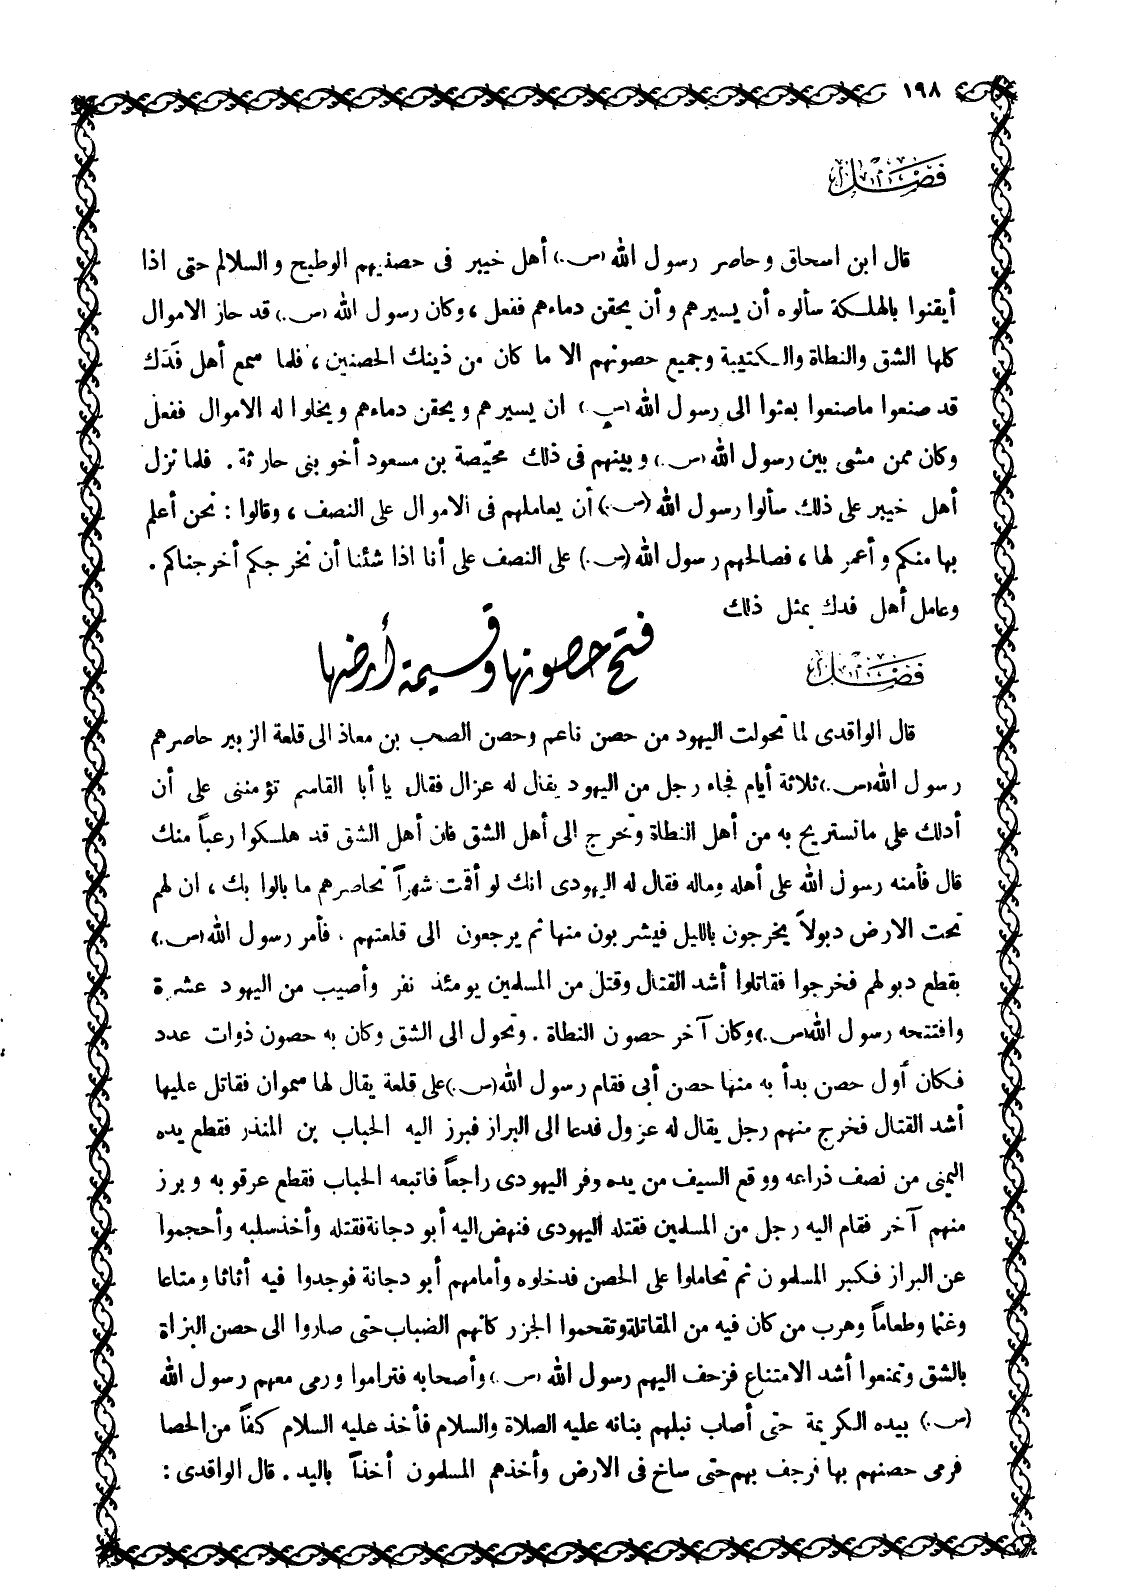 ١٩٨
فصل
قال ابن اسحاق وحاصر رسول الله (ص.) أهل خيبر فى حصنيهم الوطيح والسلالم حتى اذا
أيقنوا بالهلكة سألوه أن يسيرهم وأن يحقن دماءهم ففعل ، وكان رسول الله (ص.) قد حاز الاموال
كلها الشق والنطاة والكتيبة وجميع حصونهم الا ما كان من ذينك الحصنين ، فلما سمع أهل فَدَك
قد صنعوا ماصنعوا بعثوا الى رسول الله (ص.) ان يسيرهم ويحقن دماءهم ويخلوا له الاموال ففعل
وكان ممن مشى بين رسول الله (ص.) وبينهم فى ذلك محيّصة بن مسعود أخو بنى حارثة . فلما نزل
أهل خيبر على ذلك سألوا رسول الله (ص.) أن يعاملهم فى الاموال على النصف ، وقالوا : نحن أعلم
بها منكم وأعمر لها ، فصالحهم رسول الله (ص.) على النصف على أنا اذا شئنا أن نخرجكم أخرجناكم .
وعامل أهل فدك بمثل ذلك
فصل
فتح حصونها وقسيمة أرضها
قال الواقدى لما تحولت اليهود من حصن ناعم وحصن الصعب بن معاذ الى قلعة الزبير حاصرهم
رسول الله (ص.) ثلاثة أيام فجاء رجل من اليهود يقال له عزال فقال يا أبا القاسم تؤمننى على أن
أدلك على ما تستريح به من أهل النطاة وتخرج الى أهل الشق فان أهل الشق قد هلكوا رعباً منك
قال فأمنه رسول الله على أهله وماله فقال له اليهودى انك لو أقمت شهراً تحاصرهم ما بالوا بك ، ان لهم
تحت الارض دبولاً يخرجون بالليل فيشربون منها ثم يرجعون الى قلعتهم . فأمر رسول الله (ص.)
بقطع دبولهم فخرجوا فقاتلوا أشد القتال وقتل من المسلمين يومئذ نفر وأصيب من اليهود عشرة
وافتتحه رسول الله (ص.) وكان آخر حصون النطاة . وتحول الى الشق وكان به حصون ذوات عدد
فكان أول حصن بدأ به منها حصن أبى فقام رسول الله (ص.) على قلعة يقال لها سموان فقاتل عليها
أشد القتال فخرج منهم رجل يقال له عزول فدعا الى البراز فبرز اليه الحباب بن المنذر فقطع يده
اليمنى من نصف ذراعه ووقع السيف من يده وفر اليهودى راجعاً فاتبعه الحباب فقطع عرقوبه وبرز
منهم آخر فقام اليه رجل من المسلمين فقتله اليهودى فنهض اليه أبو دجانة فقتله وأخذ سلبه وأحجموا
عن البراز فكبر المسلمون ثم تحاملوا على الحصن فدخلوه وأمامهم أبو دجانة فوجدوا فيه أثاثا ومتاعا
وغنما وطعاماً وهرب من كان فيه من المقاتلة وتقحموا الجزر كأنهم الضباب حتى صاروا الى حصن البزاة
بالشق وتمنعوا أشد الامتناع فزحف اليهم رسول الله (ص.) وأصحابه فتراموا ورمى معهم رسول الله
(ص.) بيده الكريمة حتى أصاب نبلهم بنانه عليه الصلاة والسلام فأخذ عليه السلام كفاً من الحصا
فرمى حصنهم بها فرجف بهم حتى ساخ فى الارض وأخذهم المسلمون أخذاً باليد . قال الواقدى :